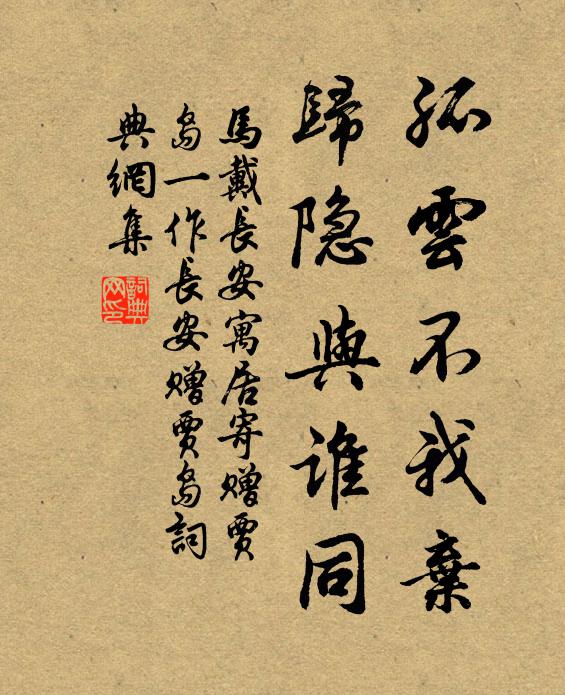 孤雲不我棄
歸隐與誰同
馬戴長安寓居寄贈賈
島一作長安贈賈島詞
典網集
詞典网印